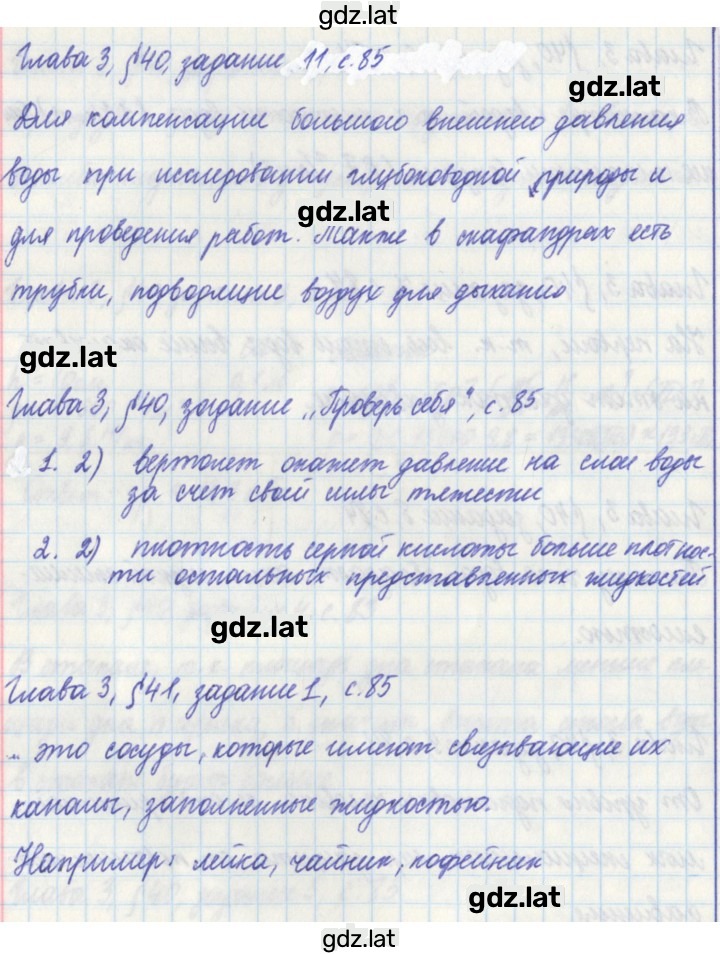 gdz.lat
Глава 3, §40, задание 11, с.85
gdz.lat
Для компенсации большого внешнего давления
воды при исследовании глубоководной природы и
gdz.lat
для проведения работ. Также в скафандрах есть
трубки, подводящие воздух для дыхания
gdz.lat
Глава 3, §40, задание „Проверь себя", с.85
1. 2) вертолет окажет давление на слои воды
за счет свой силы тяжести
2. 2) плотность серной кислоты больше плотнос-
ти остальных представленных жидкостей
gdz.lat
Глава 3, §41, задание 1, с.85
.. это сосуды, которые имеют связывающие их
каналы, заполненные жидкостью.
Например: лейка, чайник, кофейник
gdz.lat
gdz.lat